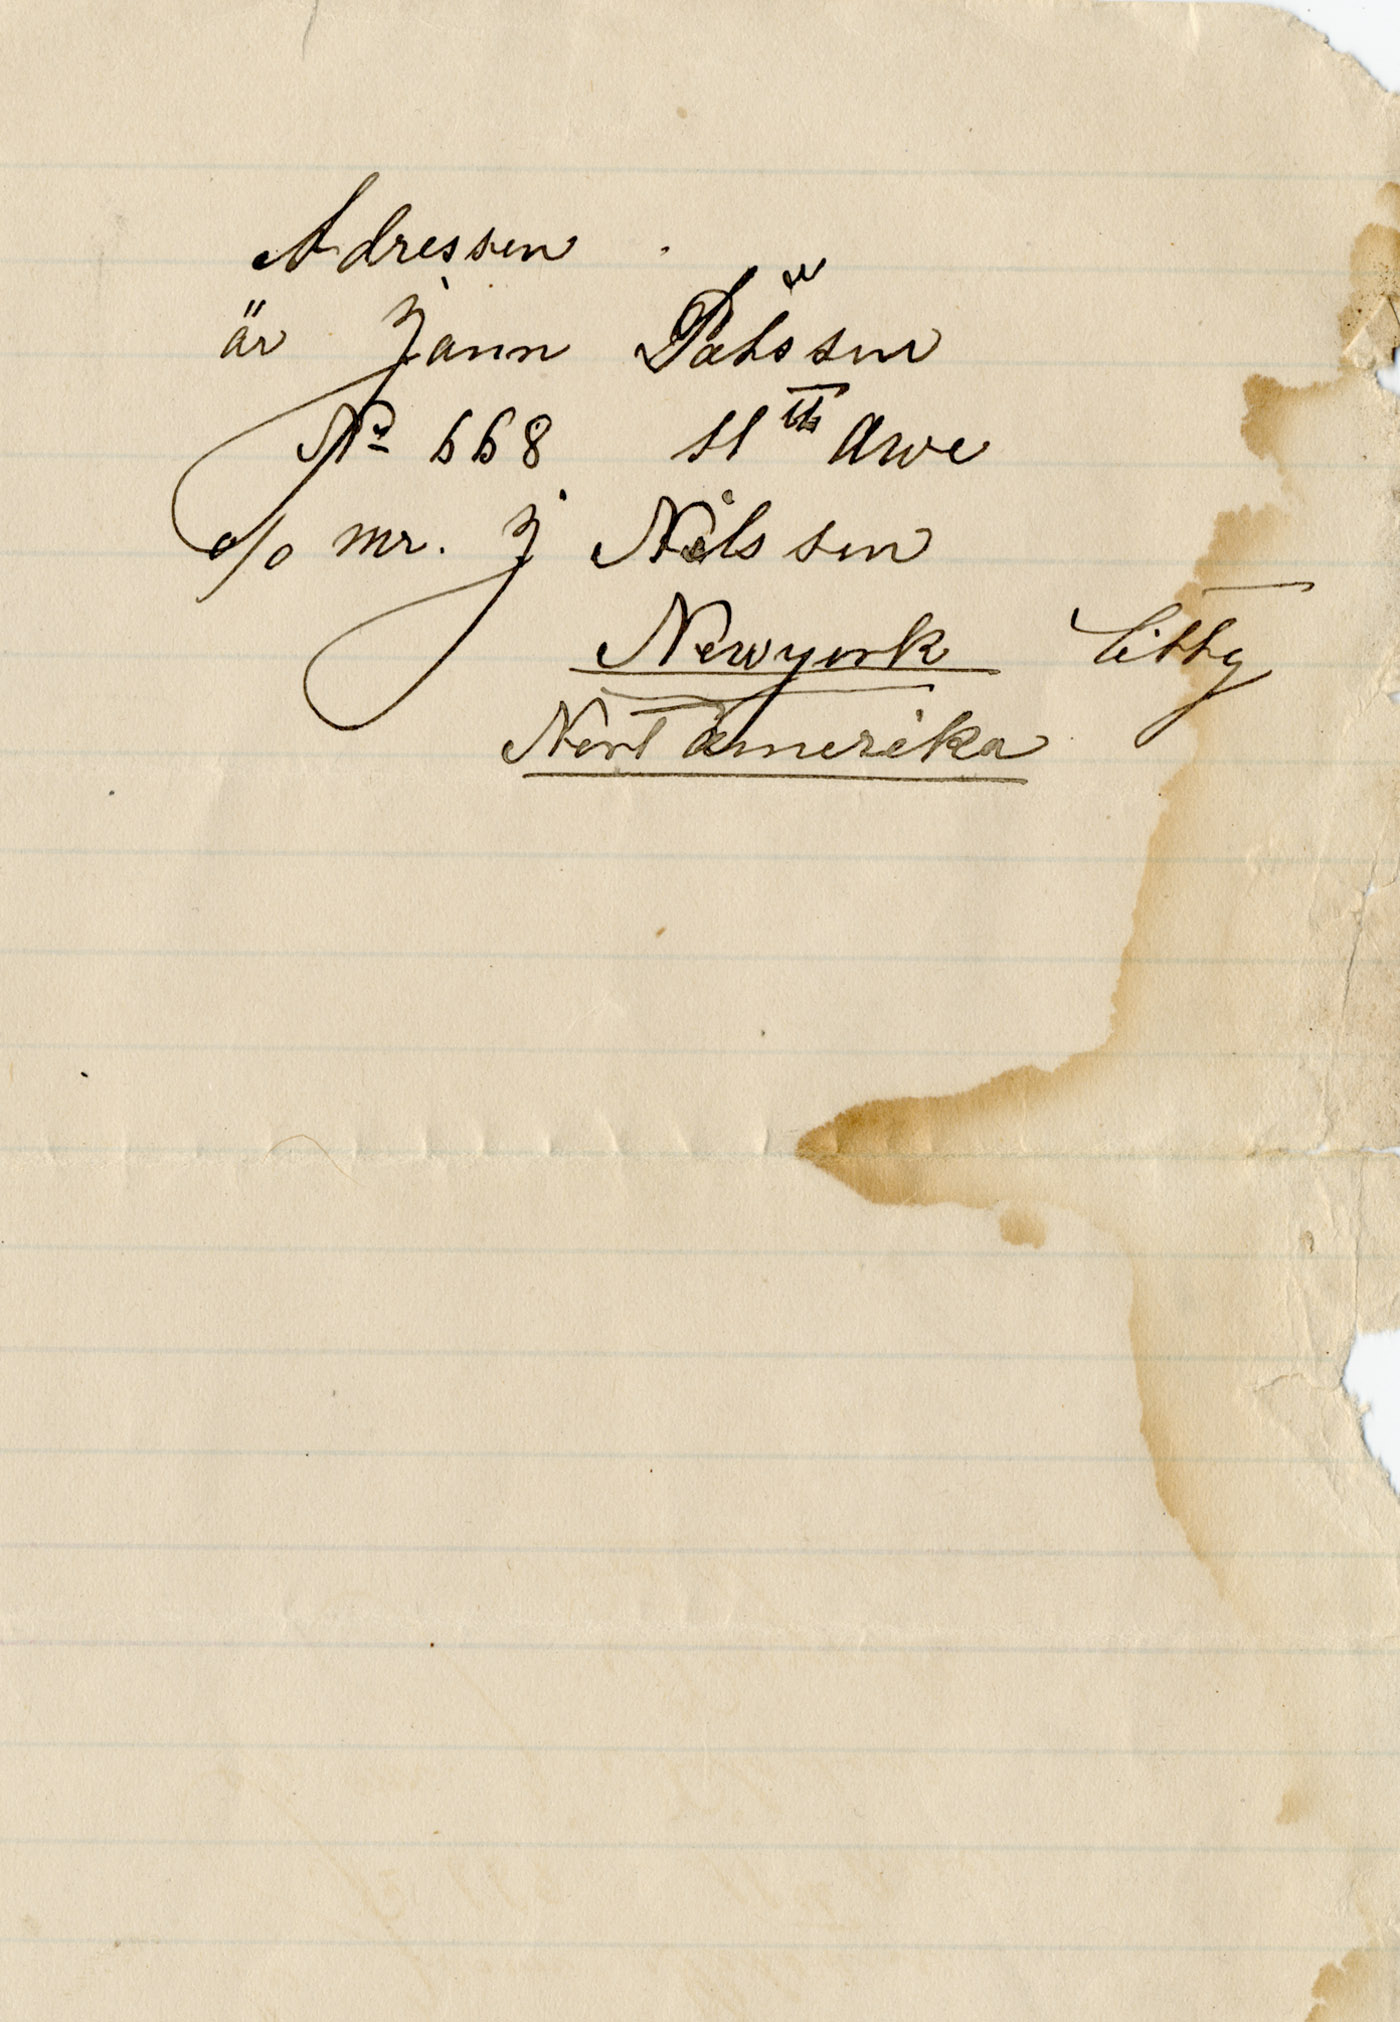 Adressen
är Jann Pålsson
No 668 11th Awe
c/o mr. J Nilsson
Newyork Citty
Nort amerika